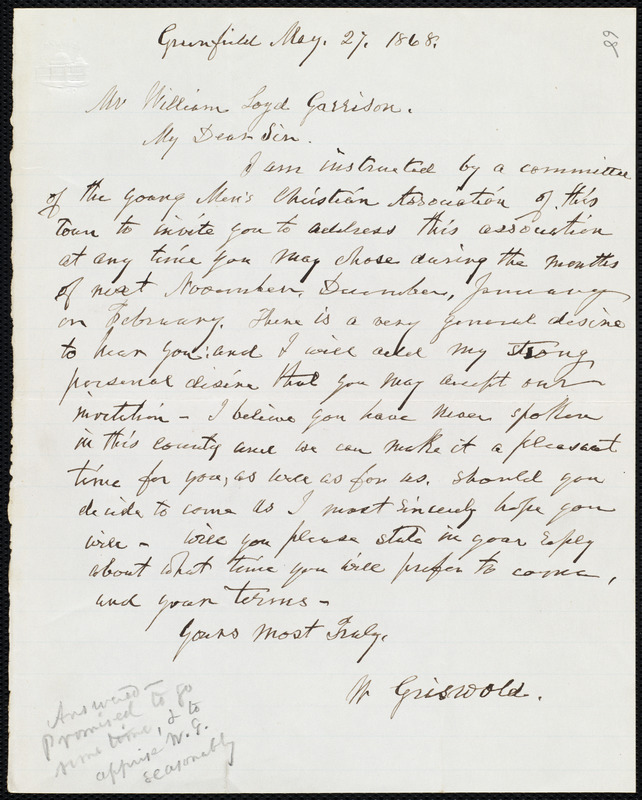 Greenfield May. 27. 1868.
89
Mr William Loyd Garrison.
My Dear Sir.
I am instructed by a committee
of the Young Men's Christian Association of this
town to invite you to address this association
at any time you may chose during the months
of next November, December, January
or February. There is a very general desire
to hear you: and I will add my strong
personal desire that you may accept our
invitation – I believe you have never spoken
in this county and we can make it a pleasant
time for you, as well as for us. Should you
decide to come as I most sincerely hope you
will – will you please state in your reply
about what time you will prefer to come,
and your terms –
Yours most Truly,
W Griswold.
Answered –
Promised to go
some time, & to
apprise W. G.
seasonably